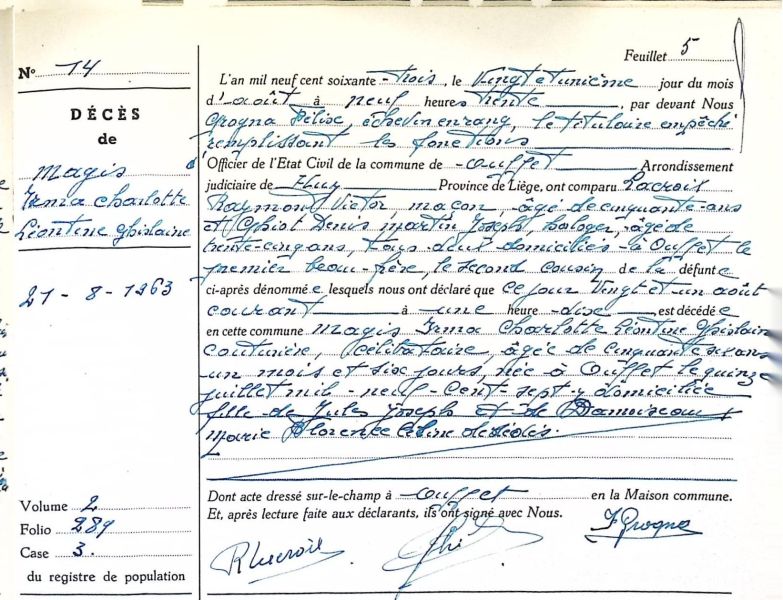 Feuillet 5
N° 14
DÉCÈS
de
Magis
Irma Charlotte
Léontine Ghislaine
21-8-1963
Volume 2
Folio 289
Case 3.
du registre de population
L'an mil neuf cent soixante-trois, le vingt et unième jour du mois
d'août à neuf heures trente, par devant Nous
Grogna Félix, échevin en rang, le titulaire empêché
remplissant les fonctions
Officier de l'Etat Civil de la commune de Ouffet Arrondissement
judiciaire de Huy Province de Liège, ont comparu Lacroix
Raymond Victor, maçon, âgé de cinquante-ans
et Ghiot Denis Martin Joseph, horloger, âgé de
trente-cinq ans, tous deux domiciliés à Ouffet le
premier beau-frère, le second cousin de la défunte
ci-après dénommée lesquels nous ont déclaré que ce jour vingt et un août
courant à une heure dix, est décédée
en cette commune Magis Irma Charlotte Léontine Ghislaine
couturière, célibataire, âgée de cinquante six ans
un mois et six jours, née à Ouffet le quinze
juillet mil-neuf-cent sept y domiciliée
fille de Jules Joseph et de Damoiseau
Marie Florence Céline décédés.
Dont acte dressé sur-le-champ à Ouffet en la Maison commune.
Et, après lecture faite aux déclarants, ils ont signé avec Nous.
RLacroix
Ghi
FGrogna